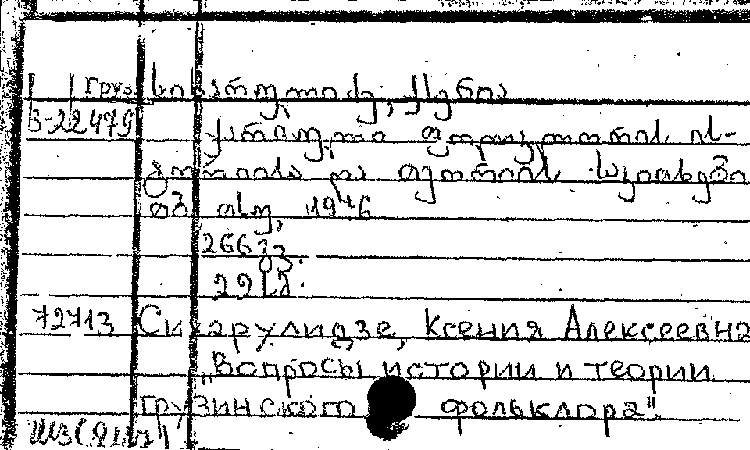 Груз სიხარულიძე, ქსენია
3-22479 ქართული ფოლკლორის ის-
ტორიისა და თეორიის საკითხები
თბ. თსუ, 1976
266 გვ.
29 სმ.
72713 Сихарулидзе, Ксения Алексеевна
"Вопросы истории и теории
грузинского фольклора"